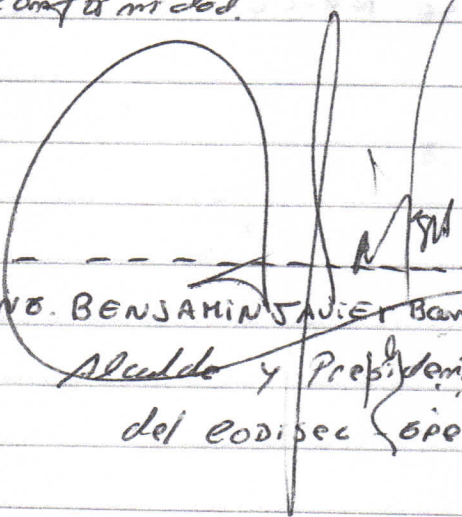 conformidad.
BENJAMIN JAVIER Bar
Alcalde y Presiden
del CODISEC